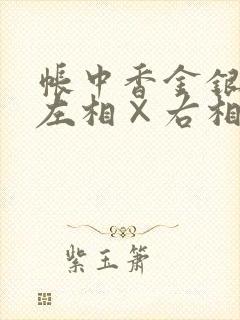 帐中香金银
左相×右相
紫玉箫